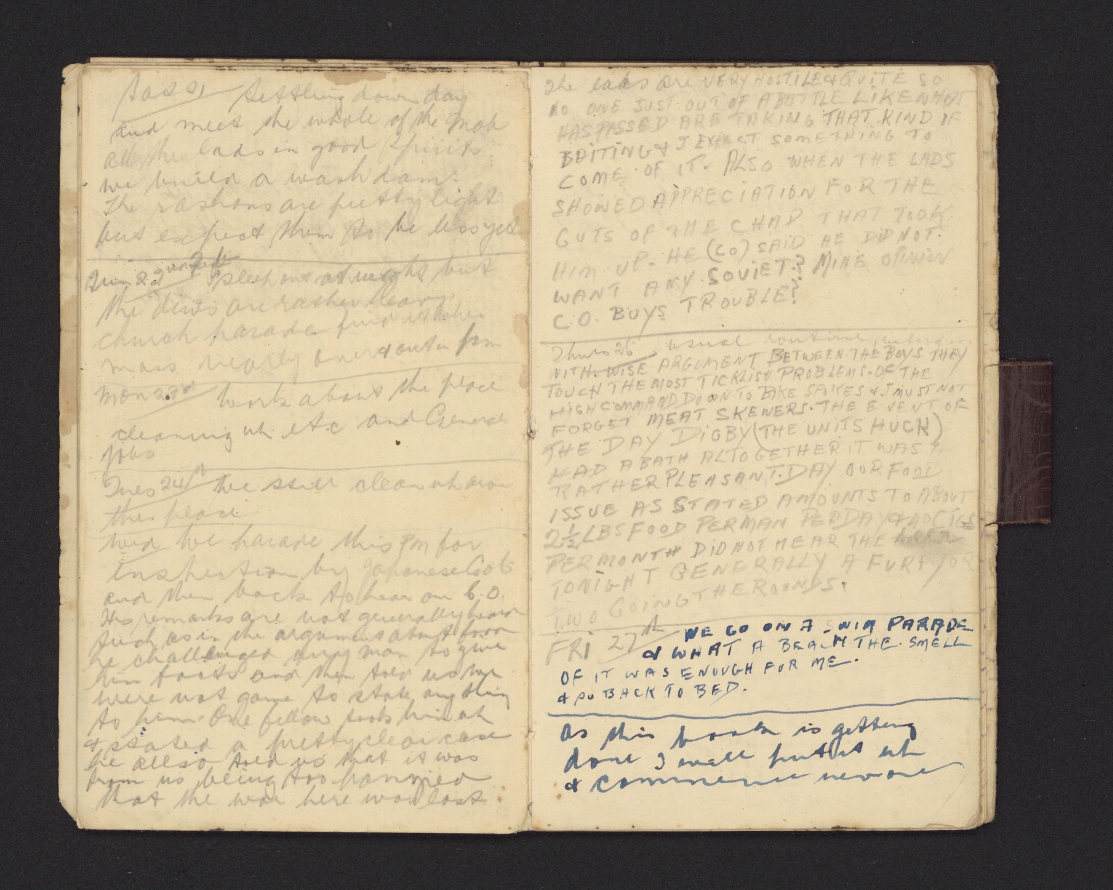 Settling down day
and meet the whole of the mob
all the lads in good spirits
we build a wash dam.
The rashons are pretty light
but expect them to be less yet
Sun 22nd
the duts are rather heavy
church parade
mass nearly over
Mon 23rd work about the place
cleaning up etc and General
Jobs
Tues 24th We still clean up around
the place
Wed We parade this PM for
inspection by Japanese
and then back to hear our C.O.
His remarks are not generally heard
such as in the argument about food
he challenged any man to give
him facts and then told us we
were not game to state anything
to him. One fellow took him up
& stated a pretty clear case
he allso told us that it was
from us being too pannied
that the war here was lost
The lads are VERY HOSTILE & QUITE SO
NO ONE JUST OUT OF A BATTLE LIKE WHAT
HAS PASSED ARE TAKING THAT KIND IF
BAITING & I EXPECT SOMETHING TO
COME OF IT. ALSO WHEN THE LADS
SHOWED APPRECIATION FOR THE
GUTS OF THE CHAP THAT TOOK
HIM UP. HE (CO) SAID HE DID NOT
WANT ANY SOVIET? MINE OPINION
C.O. BUYS TROUBLE!
Thurs 26 usual routine
WITH WISE ARGUMENT BETWEEN THE BOYS THEY
TOUCH THE MOST TICKLISH PROBLEMS OF THE
HIGH COMMAND DOWN TO BIKE SPOKES & I MUST NOT
FORGET MEAT SKEWERS. THE EVENT OF
THE DAY DIGBY (THE UNITS HUCK)
HAD A BATH ALTOGETHER IT WAS A
RATHER PLEASANT. DAY OUR FOOD
ISSUE AS STATED AMOUNTS TO ABOUT
2½ LBS FOOD PER MAN PER DAY
PER MONTH DID NOT HEAR THE
TONIGHT GENERALLY A FURPHY OR
TWO GOING THE ROUNDS.
FRI 27th WE GO ON A SWIM PARADE
& WHAT A BEACH THE SMELL
OF IT WAS ENOUGH FOR ME.
& SO BACK TO BED.
as this book is getting
done I will put it up
& commence new one